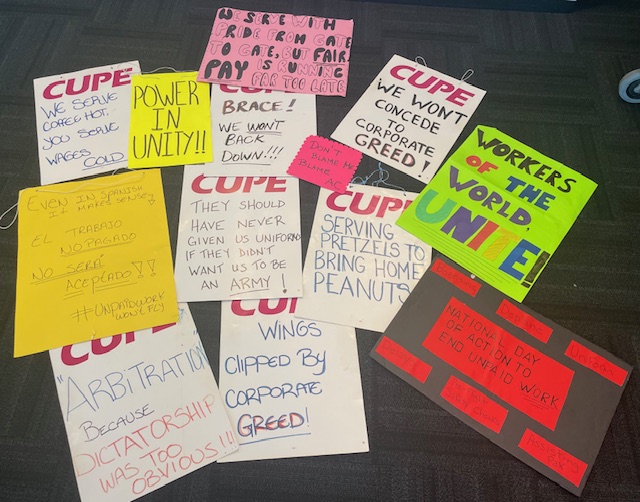 WE SERVE WITH
PRIDE FROM GATE
TO GATE, BUT FAIR
PAY IS RUNNING
FAR TOO LATE
CUPE
WE SERVE
COFFEE HOT,
YOU SERVE
WAGES
COLD
POWER
IN
UNITY!!
BRACE!
WE WON'T
BACK
DOWN!!!
CUPE
WE WONT
CONCEDE
TO
CORPORATE
GREED!
DON'T
BLAME ME
BLAME
AC
WORKERS
OF THE
WORLD,
UNITE!
EVEN IN SPANISH
IT MAKES SENSE?
EL TRABAJO
NO PAGADO
NO SERÁ
ACEPTADO!!
#UNPAIDWORK
WON'T FLY
CUPE
THEY SHOULD
HAVE NEVER
GIVEN US UNIFORMS
IF THEY DIDN'T
WANT US TO BE
AN ARMY!
CUPE
SERVING
PRETZELS TO
BRING HOME
PEANUTS
NATIONAL DAY
OF ACTION TO
END UNFAID WORK
CUPE
"ARBITRATION"
BECAUSE
DICTATORSHIP
WAS TOO
OBVIOUS!!!
CUPE
WINGS
CLIPPED BY
CORPORATE
GREED!